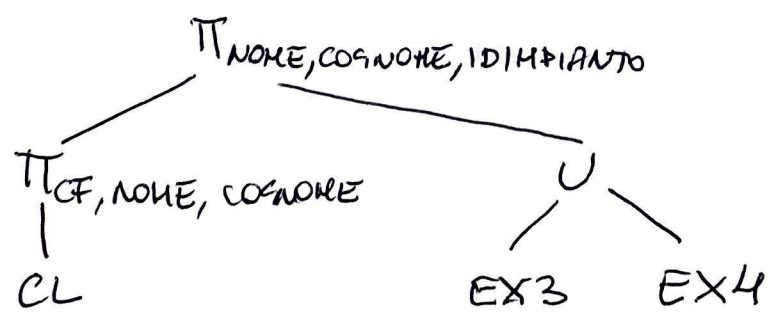 π NOME, COGNOME, IDIMPIANTO
π CF, NOME, COGNOME
∪
CL
EX3
EX4